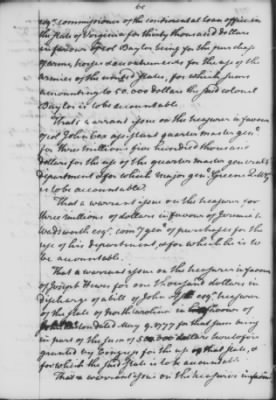 esqr. commissioner of the continental loan office in
the state of Virginia for thirty thousand dollars
in favour of col Baylor being for the purchase
of arms, horses & accoutrements for the use of the
armies of the united States, for which sums
amounting to 50.000 dollars the said colonel
Baylor is to be accountable.
That a warrant issue on the treasurer in favour
of col. John Cox assistant quarter master genl.
for three millions five hundred thousand
dollars for the use of the quarter master general's
department & for which major genl. Greene Q M G
is to be accountable.
That a warrant issue on the treasurer for
three millions of dollars in favour of Jeremiah
Wadsworth esqr. comy genl of purchases for the
use of his department, & for which he is to
be accountable.
That a warrant issue on the treasurer in favour
of Joseph Hewes for one thousand dollars in
discharge of a bill of John esqr. treasurer
of the state of North Carolina in favour of
dated May 9. 1777 for that sum being
in part of the sum of dollars heretofore
granted by Congress for the use of that state, &
for which the said State is to be accountable.
That a warrant issue on the treasurer in favour